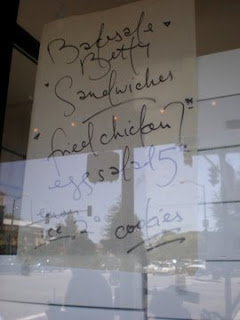 Bakesale
Betty
Sandwiches
fried chicken 7
egg salad 5
ice 2
cookies